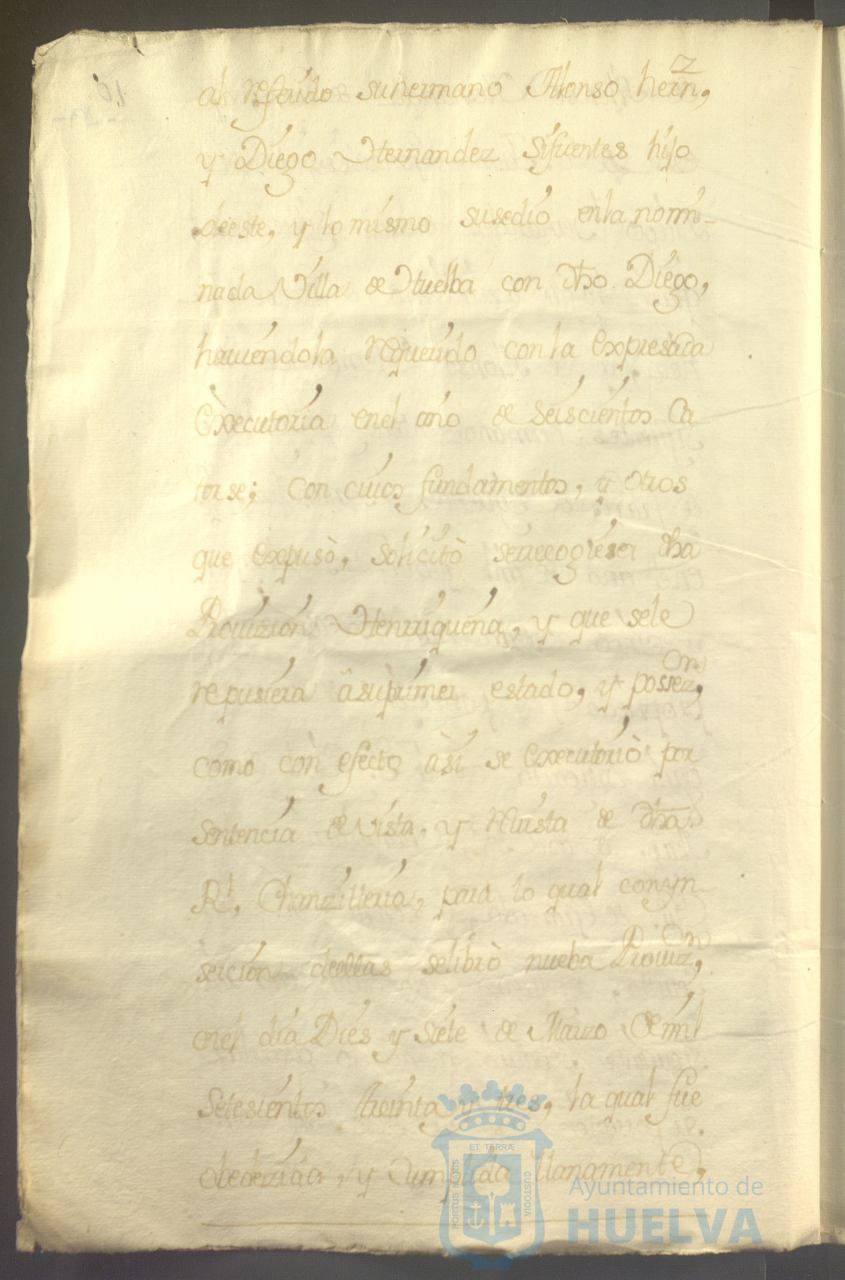 al referido su hermano Alonso hern,z
y Diego Hernandez Sifuentes hijo
de este, y lo mismo susedio en la nomi-
nada Villa de Huelba con dho. Diego,
haviendola requerido con la expresada
Executoria en el año de seiscientos ca
torse; Con cuios fundamentos, y otros
que expusò, solicitò se recogiese dha
Provizion Henrriqueña, y que se le
repusiera à su primer estado, y possez,on
como con efecto àsi se executoriò por
sentencia de vista, y revista de dha
Rl, Chanzilleria, para lo qual con yn
sercion de ellas se librò nueba Proviz,on
en el dia Dies y Siete de Marzo de mil
Setesientos treinta y tres, la qual fue
obedezida, y Cumplida llanamente,
PORTUS MARIS
ET TERRÆ
CUSTODIA
Ayuntamiento de
HUELVA